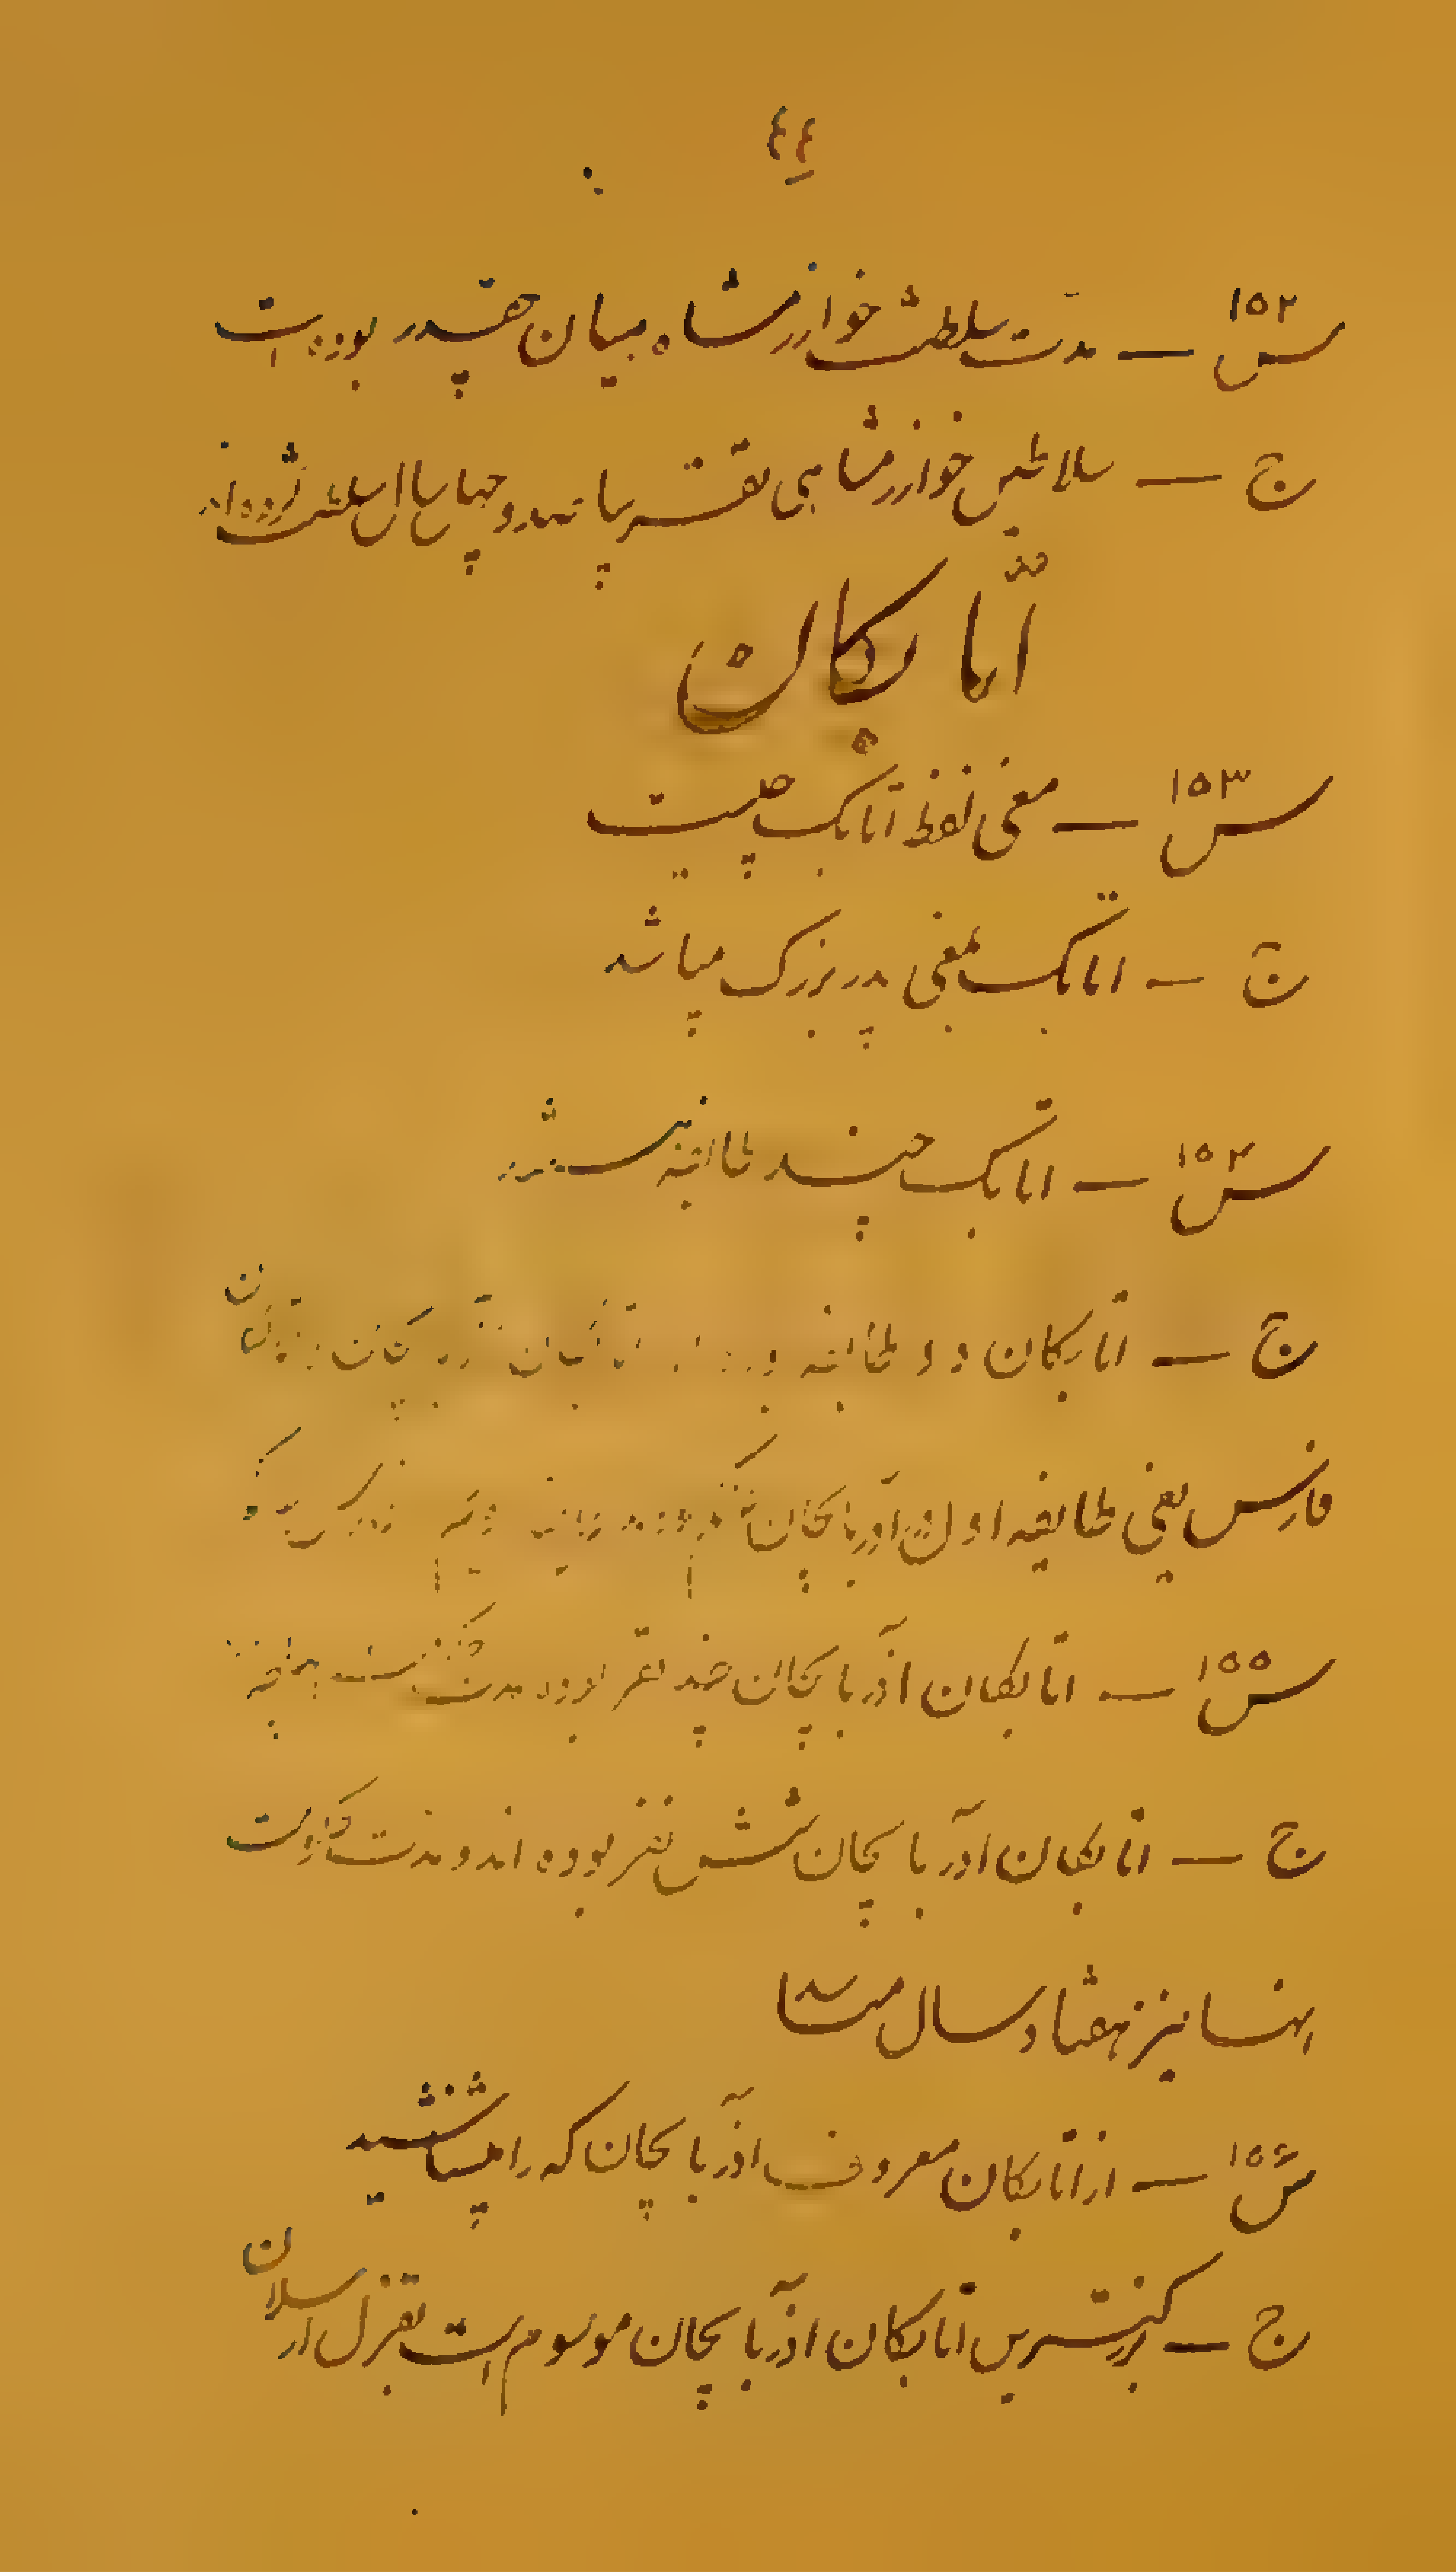 ٤٤
س ١٥٢ — مدت سلطنت خوارزمشاهیان چقدر بوده است
ج — سلاطین خوارزمشاهی تقریباً صد و چهل سال سلطنت نموده‌اند
اتابکان
س ١٥٣ — معنی لفظ اتابک چیست
ج — اتابک بمعنی پدر بزرگ میباشد
س ١٥٤ — اتابک چند طائفه میباشند
ج — اتابکان دو طائفه بوده‌اند اتابکان آذربایجان و اتابکان
فارس یعنی طایفه اول در آذربایجان
س ١٥٥ — اتابکان آذربایجان چند نفر بوده مدت حکومت
ج — اتابکان آذربایجان شش نفر بوده اند و مدت حکومت
آنها نیز هفتاد سال میباشد
س ١٥٦ — از اتابکان معروف آذربایجان که را میشناسید
ج — بزرگترین اتابکان آذربایجان موسوم است بقزل ارسلان